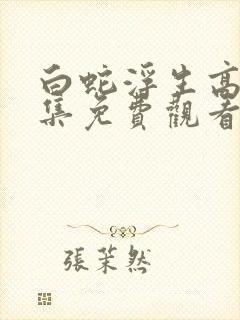 白蛇浮生高
集免費觀看
張茉然